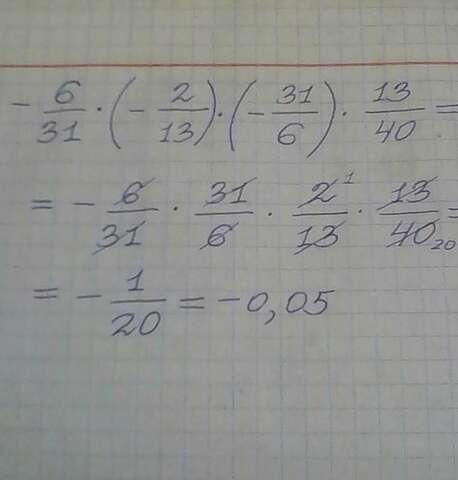 - 6/31 · (- 2/13) · (- 31/6) · 13/40 =
= - 6/31 · 31/6 · 2¹/13 · 13/40₂₀ =
= - 1/20 = -0,05